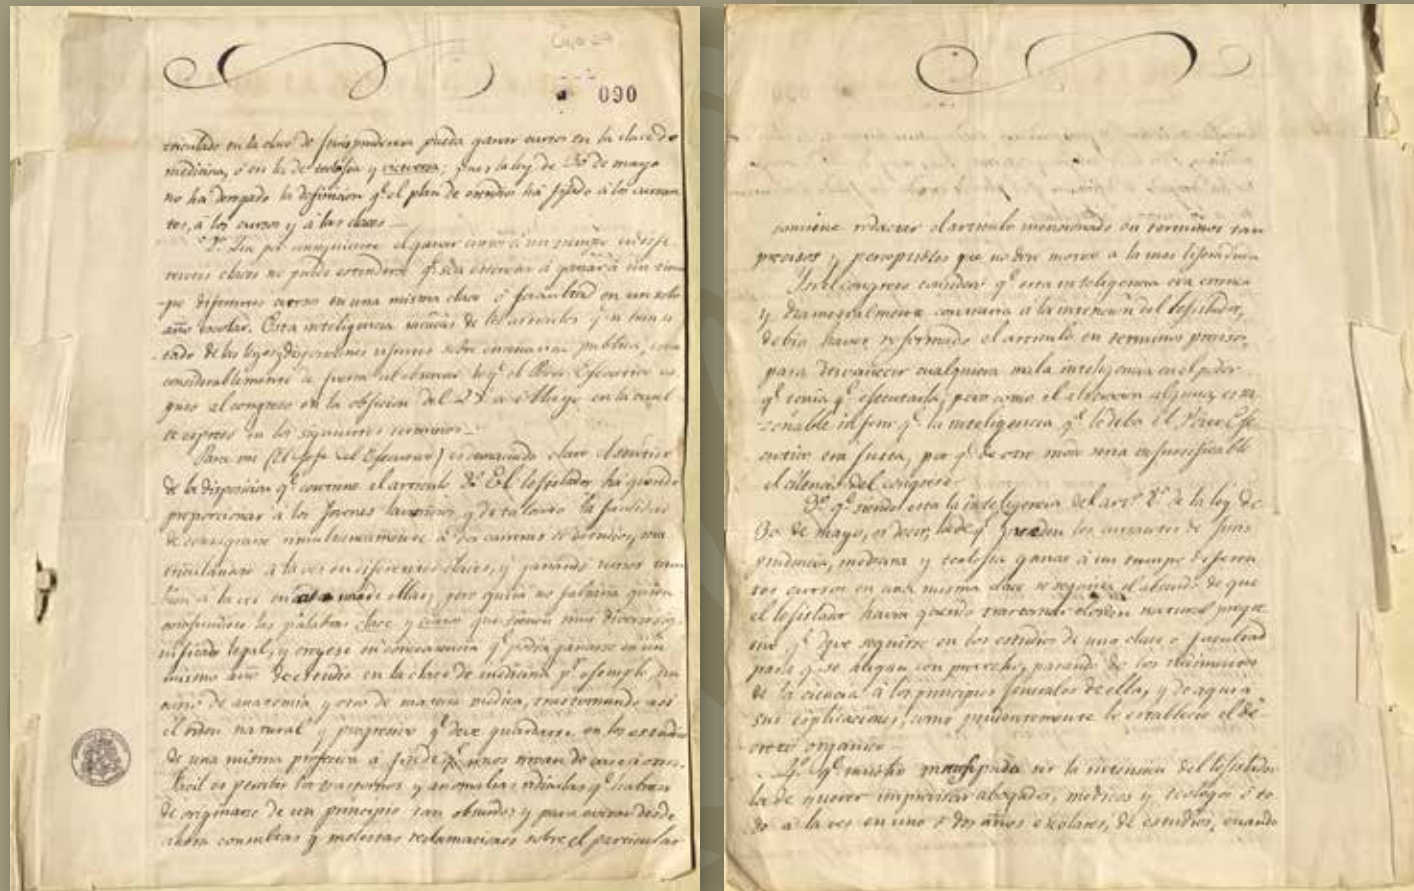 090
triculado en la clase de Jurisprudencia pueda ganar cursos en la clase de
medicina, ó en la de teolojia y viceversa; pues la ley de 30 de mayo
no ha derogado la definicion qe. el plan de estudios ha fijado á los cursan
tes, á los cursos y á las clases
2º. Que por el ganar cursos á un tiempo en dife-
rentes clases no puede entenderse qe. sea estensivo á ganar á un tiem
po diferentes cursos en una misma clase ó facultad en un solo
año escolar. Esta intelijencia de los articulos
tado de las leyes y disposiciones vijentes sobre enseñanza publica,
considerablemente de fuerza al observar lo qe. el Poder Ejecutivo es
puso al congreso en la objecion del 27 de Mayo en la cual
se espresó en los siguientes terminos
Para mi (el Jefe del Ejecutivo) es demasiado claro el sentido
de la disposicion qe. contiene el articulo 8º. El lejislador ha querido
proporcionar á los jovenes y de talento la facilidad
de consagrarse simultaneamente á dos carreras de estudios, ma
triculandose á la vez en diferentes clases, y ganando cursos tam
bien á la vez en cada una de ellas; pero quiza no faltaria quien
confundiese las palabras clase y curso que tienen muy diverso sig
nificado legal, y creyese en consecuencia qe. podia ganarse en un
mismo año de estudio en la clase de medicina pr. ejemplo, un
curso de anatomia y otro de materia médica, trastornando asi
el orden natural y progresivo qe. deve guardarse en los estudios
de una misma profesion á fin de qe. unos sirvan de á otros.
Facil es percibir los trastornos y anomalias ridiculas qe. habran
de orijinarse de un principio tan absurdo; y para evitar desde
ahora consultas y molestas reclamaciones sobre el particular
conviene redactar el articulo mencionado en terminos tan
precisos y perceptibles que no den motivo a la mas lijera duda
Si el congreso consideró qe. esta intelijencia era erronea
y diametralmente contraria a la intencion del lejislador,
debió haver reformado el articulo en terminos precisos,
para desvanecer cualquiera mala intelijencia en el poder
qe. tenia qe. ejecutarla; pero como él no hizo alguna, es ra
zonable inferir qe. la intelijencia qe. le daba el Poder Eje
cutivo era justa, por qe. de otro modo seria injustificable
el silencio del congreso
3º. qe. siendo esta la intelijencia del artº. 8º. de la ley de
30 de mayo, es decir, la de qe. pueden los cursantes de juris
prudencia, medicina y teolojia ganar á un tiempo diferen
tes cursos en una misma clase se seguiria el absurdo de que
el lejislador havia querido trastornar el orden natural progre
sivo qe. deve seguirse en los estudios de una clase ó facultad
para qe. se hagan con provecho, pasando de los rudimentos
de la ciencia á los principios jenerales de ella, y de aqui á
sus esplicaciones, como prudentemente lo estableció el de-
creto organico
4º. qe. mucho menos pudo ser la intension del lejislador
la de querer improvisar abogados, medicos y teologos ó to
do a la ves en uno ó dos años escolares, de estudios, cuando